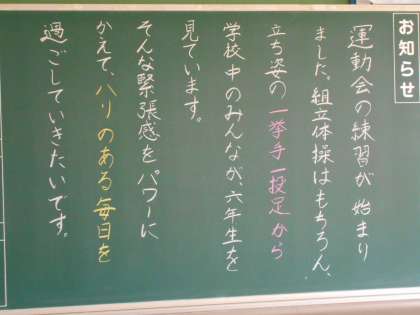 お知らせ
運動会の練習が始まり
ました。組立体操はもちろん、
立ち姿の一挙手一投足から
学校中のみんなが、六年生を
見ています。
そんな緊張感をパワーに
かえて、ハリのある毎日を
過ごしていきたいです。